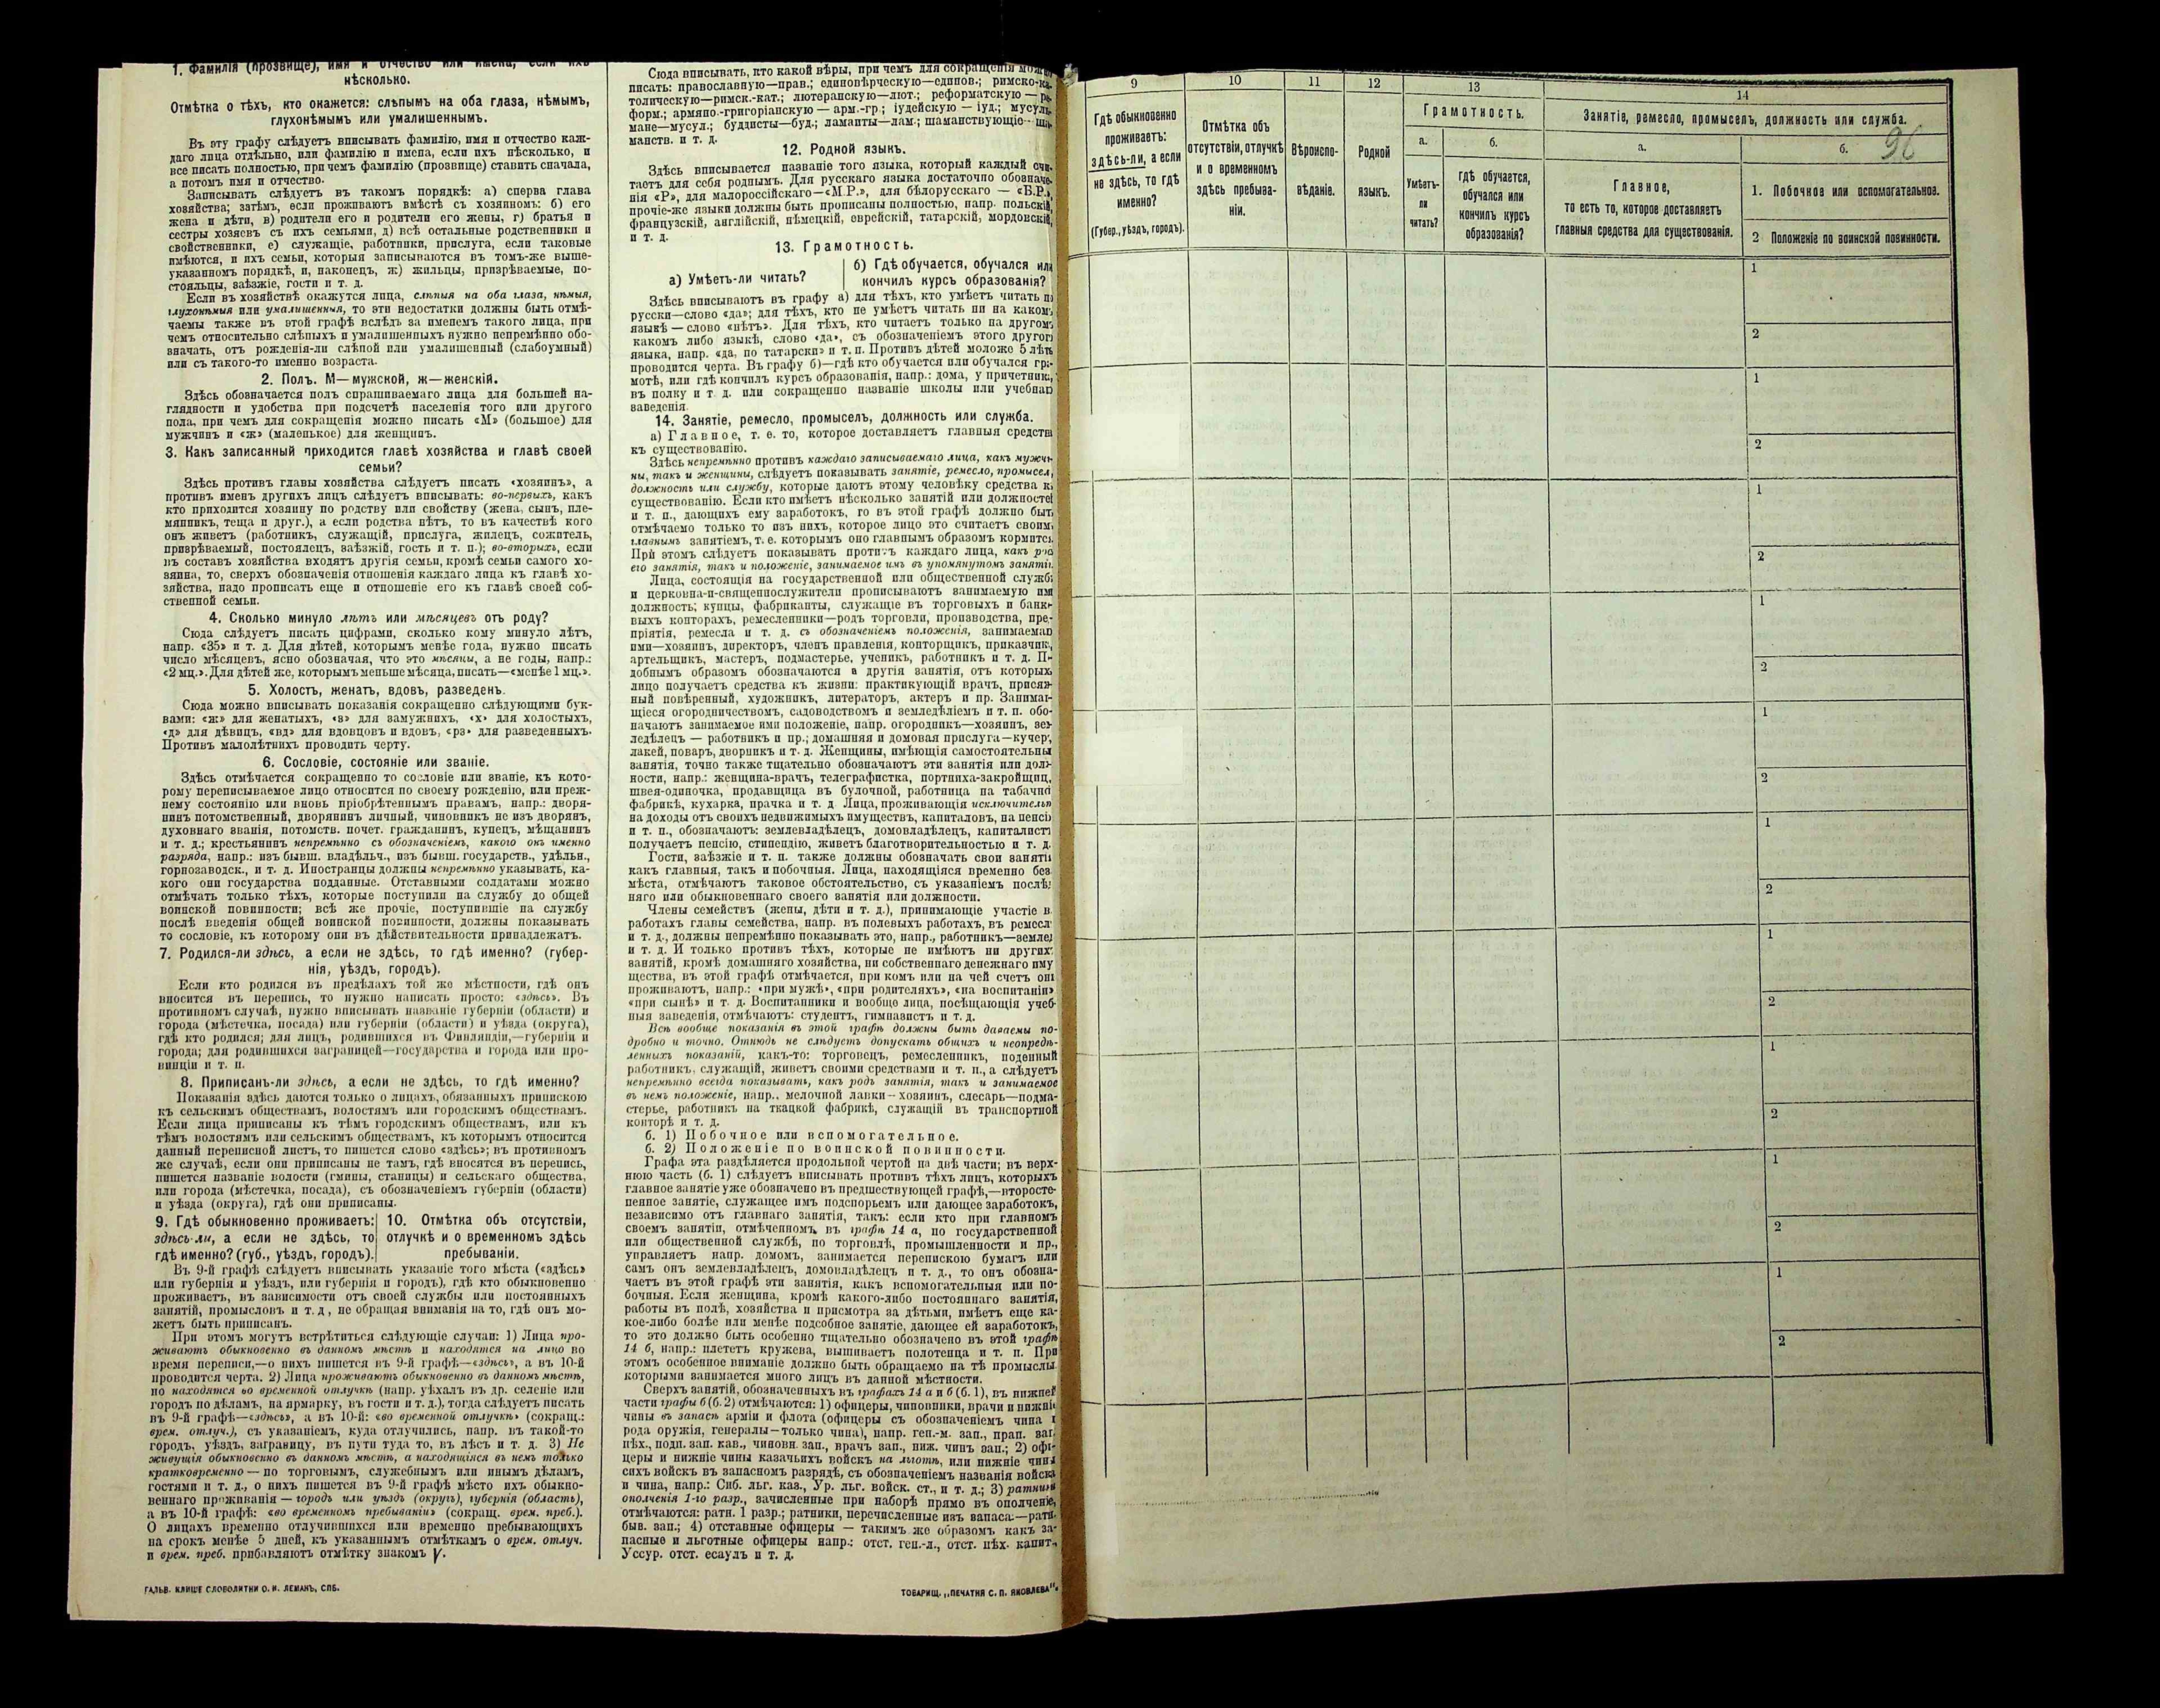 1. Фамилія (прозвище), имя и отчество или имена, если ихъ
нѣсколько.
Отмѣтка о тѣхъ, кто окажется: слѣпымъ на оба глаза, нѣмымъ,
глухонѣмымъ или умалишеннымъ.
Въ эту графу слѣдуетъ вписывать фамилію, имя и отчество каж-
даго лица отдѣльно, или фамилію и имена, если ихъ нѣсколько, и
все писать полностью, при чемъ фамилію (прозвище) ставить сначала,
а потомъ имя и отчество.
Записывать слѣдуетъ въ такомъ порядкѣ: а) сперва глава
хозяйства; затѣмъ, если проживаютъ вмѣстѣ съ хозяиномъ: б) его
жена и дѣти, в) родители его и родители его жены, г) братья и
сестры хозяевъ съ ихъ семьями, д) всѣ остальные родственники и
свойственники, е) служащіе, работники, прислуга, если таковые
имѣются, и ихъ семьи, которыя записываются въ томъ-же выше-
указанномъ порядкѣ, и, наконецъ, ж) жильцы, призрѣваемые, по-
стояльцы, заѣзжіе, гости и т. д.
Если въ хозяйствѣ окажутся лица, слѣпыя на оба глаза, нѣмыя,
глухонѣмыя или умалишенныя, то эти недостатки должны быть отмѣ-
чаемы также въ этой графѣ вслѣдъ за именемъ такого лица, при
чемъ относительно слѣпыхъ и умалишенныхъ нужно непремѣнно обо-
значать, отъ рожденія-ли слѣпой или умалишенный (слабоумный)
или съ такого-то именно возраста.
2. Полъ. М—мужской, ж—женскій.
Здѣсь обозначается полъ спрашиваемаго лица для большей на-
глядности и удобства при подсчетѣ населенія того или другого
пола, при чемъ для сокращенія можно писать «М» (большое) для
мужчинъ и «ж» (маленькое) для женщинъ.
3. Какъ записанный приходится главѣ хозяйства и главѣ своей
семьи?
Здѣсь противъ главы хозяйства слѣдуетъ писать «хозяинъ», а
противъ именъ другихъ лицъ слѣдуетъ вписывать: во-первыхъ, какъ
кто приходится хозяину по родству или свойству (жена, сынъ, пле-
мянникъ, теща и друг.), а если родства нѣтъ, то въ качествѣ кого
онъ живетъ (работникъ, служащій, прислуга, жилецъ, сожитель,
призрѣваемый, постоялецъ, заѣзжій, гость и т. п.); во-вторыхъ, если
въ составъ хозяйства входятъ другія семьи, кромѣ семьи самого хо-
зяина, то, сверхъ обозначенія отношенія каждаго лица къ главѣ хо-
зяйства, надо прописать еще и отношеніе его къ главѣ своей соб-
ственной семьи.
4. Сколько минуло лѣтъ или мѣсяцевъ отъ роду?
Сюда слѣдуетъ писать цифрами, сколько кому минуло лѣтъ,
напр. «35» и т. д. Для дѣтей, которымъ менѣе года, нужно писать
число мѣсяцевъ, ясно обозначая, что это мѣсяцы, а не годы, напр.:
«2 мц.». Для дѣтей же, которымъ меньше мѣсяца, писать—«менѣе 1 мц.».
5. Холостъ, женатъ, вдовъ, разведенъ.
Сюда можно вписывать показанія сокращенно слѣдующими бук-
вами: «ж» для женатыхъ, «з» для замужнихъ, «х» для холостыхъ,
«д» для дѣвицъ, «вд» для вдовцовъ и вдовъ, «рз» для разведенныхъ.
Противъ малолѣтнихъ проводить черту.
6. Сословіе, состояніе или званіе.
Здѣсь отмѣчается сокращенно то сословіе или званіе, къ кото-
рому переписываемое лицо относится по своему рожденію, или преж-
нему состоянію или вновь пріобрѣтеннымъ правамъ, напр.: дворя-
нинъ потомственный, дворянинъ личный, чиновникъ не изъ дворянъ,
духовнаго званія, потомств. почет. гражданинъ, купецъ, мѣщанинъ
и т. д.; крестьянинъ непремѣнно съ обозначеніемъ, какого онъ именно
разряда, напр.: изъ бывш. владѣльч., изъ бывш. государств., удѣльн.,
горнозаводск., и т. д. Иностранцы должны непремѣнно указывать, ка-
кого они государства подданные. Отставными солдатами можно
отмѣчать только тѣхъ, которые поступили на службу до общей
воинской повинности; всѣ же прочіе, поступившіе на службу
послѣ введенія общей воинской повинности, должны показывать
то сословіе, къ которому они въ дѣйствительности принадлежатъ.
7. Родился-ли здѣсь, а если не здѣсь, то гдѣ именно? (губер-
нія, уѣздъ, городъ).
Если кто родился въ предѣлахъ той же мѣстности, гдѣ онъ
вносится въ перепись, то нужно написать просто: «здѣсь». Въ
противномъ случаѣ, нужно вписывать названіе губерніи (области) и
города (мѣстечка, посада) или губерніи (области) и уѣзда (округа),
гдѣ кто родился; для лицъ, родившихся въ Финляндіи,—губерніи и
города; для родившихся заграницей—государства и города или про-
винціи и т. п.
8. Приписанъ-ли здѣсь, а если не здѣсь, то гдѣ именно?
Показанія здѣсь даются только о лицахъ, обязанныхъ припискою
къ сельскимъ обществамъ, волостямъ или городскимъ обществамъ.
Если лица приписаны къ тѣмъ городскимъ обществамъ, или къ
тѣмъ волостямъ или сельскимъ обществамъ, къ которымъ относится
данный переписной листъ, то пишется слово «здѣсь»; въ противномъ
же случаѣ, если они приписаны не тамъ, гдѣ вносятся въ перепись,
пишется названіе волости (гмины, станицы) и сельскаго общества,
или города (мѣстечка, посада), съ обозначеніемъ губерніи (области)
и уѣзда (округа), гдѣ они приписаны.
9. Гдѣ обыкновенно проживаетъ:
здѣсь-ли, а если не здѣсь, то
гдѣ именно? (губ., уѣздъ, городъ).
10. Отмѣтка объ отсутствіи,
отлучкѣ и о временномъ здѣсь
пребываніи.
Въ 9-й графѣ слѣдуетъ вписывать указаніе того мѣста («здѣсь»
или губернія и уѣздъ, или губернія и городъ), гдѣ кто обыкновенно
проживаетъ, въ зависимости отъ своей службы или постоянныхъ
занятій, промысловъ и т. д, не обращая вниманія на то, гдѣ онъ мо-
жетъ быть приписанъ.
При этомъ могутъ встрѣтиться слѣдующіе случаи: 1) Лица про-
живаютъ обыкновенно въ данномъ мѣстѣ и находятся на лицо во
время переписи,—о нихъ пишется въ 9-й графѣ—«здѣсь», а въ 10-й
проводится черта. 2) Лица проживаютъ обыкновенно въ данномъ мѣстѣ,
но находятся во временной отлучкѣ (напр. уѣхалъ въ др. селеніе или
городъ по дѣламъ, на ярмарку, въ гости и т. д.), тогда слѣдуетъ писать
въ 9-й графѣ—«здѣсь», а въ 10-й: «во временной отлучкѣ» (сокращ.:
врем. отлуч.), съ указаніемъ, куда отлучились, напр. въ такой-то
городъ, уѣздъ, заграницу, въ пути туда то, въ лѣсъ и т. д. 3) Не
живущія обыкновенно въ данномъ мѣстѣ, а находящіяся въ немъ только
кратковременно — по торговымъ, служебнымъ или инымъ дѣламъ,
гостями и т. д., о нихъ пишется въ 9-й графѣ мѣсто ихъ обыкно-
веннаго проживанія — городъ или уѣздъ (округъ), губернія (область),
а въ 10-й графѣ: «во временномъ пребываніи» (сокращ. врем. преб.).
О лицахъ временно отлучившихся или временно пребывающихъ
на срокъ менѣе 5 дней, къ указаннымъ отмѣткамъ о врем. отлуч.
и врем. преб. прибавляютъ отмѣтку знакомъ V.
ГАЛЬВ. КЛИШЕ СЛОВОЛИТНИ О. И. ЛЕМАНЪ, СПБ.
Сюда вписывать, кто какой вѣры, при чемъ для сокращенія можно
писать: православную—прав.; единовѣрческую—единов.; римско-ка-
толическую—римск.-кат.; лютеранскую—лют.; реформатскую — ре-
форм.; армяно.-григоріанскую — арм.-гр.; іудейскую — іуд.; мусуль-
мане—мусул.; буддисты—буд.; ламаиты—лам.; шаманствующіе—ша-
манств. и т. д.
12. Родной языкъ.
Здѣсь вписывается названіе того языка, который каждый счи-
таетъ для себя роднымъ. Для русскаго языка достаточно обозначе-
нія «Р», для малороссійскаго—«М.Р.», для бѣлорусскаго — «Б.Р.»,
прочіе-же языки должны быть прописаны полностью, напр. польскій,
французскій, англійскій, нѣмецкій, еврейскій, татарскій, мордовскій,
и т. д.
13. Грамотность.
а) Умѣетъ-ли читать?
б) Гдѣ обучается, обучался или
кончилъ курсъ образованія?
Здѣсь вписываютъ въ графу а) для тѣхъ, кто умѣетъ читать по
русски—слово «да»; для тѣхъ, кто не умѣетъ читать ни на какомъ
языкѣ — слово «нѣтъ». Для тѣхъ, кто читаетъ только на другомъ
какомъ либо языкѣ, слово «да», съ обозначеніемъ этого другого
языка, напр. «да, по татарски» и т. п. Противъ дѣтей моложе 5 лѣтъ
проводится черта. Въ графу б)—гдѣ кто обучается или обучался гра-
мотѣ, или гдѣ кончилъ курсъ образованія, напр.: дома, у причетника,
въ полку и т. д. или сокращенно названіе школы или учебнаго
заведенія.
14. Занятіе, ремесло, промыселъ, должность или служба.
а) Главное, т. е. то, которое доставляетъ главныя средства
къ существованію.
Здѣсь непремѣнно противъ каждаго записываемаго лица, какъ мужчи-
ны, такъ и женщины, слѣдуетъ показывать занятіе, ремесло, промыселъ,
должность или службу, которые даютъ этому человѣку средства къ
существованію. Если кто имѣетъ нѣсколько занятій или должностей
и т. п., дающихъ ему заработокъ, то въ этой графѣ должно быть
отмѣчаемо только то изъ нихъ, которое лицо это считаетъ своимъ
главнымъ занятіемъ, т. е. которымъ оно главнымъ образомъ кормится.
При этомъ слѣдуетъ показывать противъ каждаго лица, какъ родъ
его занятія, такъ и положеніе, занимаемое имъ въ упомянутомъ занятіи.
Лица, состоящія на государственной или общественной службѣ
и церковно-и-священнослужители прописываютъ занимаемую ими
должность; купцы, фабриканты, служащіе въ торговыхъ и банко-
выхъ конторахъ, ремесленники—родъ торговли, производства, пред-
пріятія, ремесла и т. д. съ обозначеніемъ положенія, занимаемаго
ими—хозяинъ, директоръ, членъ правленія, конторщикъ, приказчикъ,
артельщикъ, мастеръ, подмастерье, ученикъ, работникъ и т. д. По-
добнымъ образомъ обозначаются и другія занятія, отъ которыхъ
лицо получаетъ средства къ жизни: практикующій врачъ, присяж-
ный повѣренный, художникъ, литераторъ, актеръ и пр. Занимаю-
щіеся огородничествомъ, садоводствомъ и земледѣліемъ и т. п. обоз-
начаютъ занимаемое ими положеніе, напр. огородникъ—хозяинъ, зем-
ледѣлецъ — работникъ и пр.; домашняя и домовая прислуга—кучеръ,
лакей, поваръ, дворникъ и т. д. Женщины, имѣющія самостоятельныя
занятія, точно также тщательно обозначаютъ эти занятія или долж-
ности, напр.: женщина-врачъ, телеграфистка, портниха-закройщица,
швея-одиночка, продавщица въ булочной, работница на табачной
фабрикѣ, кухарка, прачка и т. д. Лица, проживающія исключительно
на доходы отъ своихъ недвижимыхъ имуществъ, капиталовъ, на пенсію
и т. п., обозначаютъ: землевладѣлецъ, домовладѣлецъ, капиталистъ,
получаетъ пенсію, стипендію, живетъ благотворительностью и т. д.
Гости, заѣзжіе и т. п. также должны обозначать свои занятія
какъ главныя, такъ и побочныя. Лица, находящіяся временно безъ
мѣста, отмѣчаютъ таковое обстоятельство, съ указаніемъ послѣд-
няго или обыкновеннаго своего занятія или должности.
Члены семействъ (жены, дѣти и т. д.), принимающіе участіе въ
работахъ главы семейства, напр. въ полевыхъ работахъ, въ ремеслѣ
и т. д., должны непремѣнно показывать это, напр., работникъ—землед.
и т. д. И только противъ тѣхъ, которые не имѣютъ ни другихъ
занятій, кромѣ домашняго хозяйства, ни собственнаго денежнаго иму-
щества, въ этой графѣ отмѣчается, при комъ или на чей счетъ они
проживаютъ, напр.: «при мужѣ», «при родителяхъ», «на воспитаніи»,
«при сынѣ» и т. д. Воспитанники и вообще лица, посѣщающія учеб-
ныя заведенія, отмѣчаютъ: студентъ, гимназистъ и т. д.
Всѣ вообще показанія въ этой графѣ должны быть даваемы по-
дробно и точно. Отнюдь не слѣдуетъ допускать общихъ и неопредѣ-
ленныхъ показаній, какъ-то: торговецъ, ремесленникъ, поденный
работникъ, служащій, живетъ своими средствами и т. п., а слѣдуетъ
непремѣнно всегда показывать, какъ родъ занятія, такъ и занимаемое
въ немъ положеніе, напр.. мелочной лавки—хозяинъ, слесарь—подма-
стерье, работникъ на ткацкой фабрикѣ, служащій въ транспортной
конторѣ и т. д.
б. 1) Побочное или вспомогательное.
б. 2) Положеніе по воинской повинности.
Графа эта раздѣляется продольной чертой на двѣ части; въ верх-
нюю часть (б. 1) слѣдуетъ вписывать противъ тѣхъ лицъ, которыхъ
главное занятіе уже обозначено въ предшествующей графѣ,—второсте-
пенное занятіе, служащее имъ подспорьемъ или дающее заработокъ,
независимо отъ главнаго занятія, такъ: если кто при главномъ
своемъ занятіи, отмѣченномъ въ графѣ 14 а, по государственной
или общественной службѣ, по торговлѣ, промышленности и пр.,
управляетъ напр. домомъ, занимается перепискою бумагъ или
самъ онъ землевладѣлецъ, домовладѣлецъ и т. д., то онъ обозна-
чаетъ въ этой графѣ эти занятія, какъ вспомогательныя или по-
бочныя. Если женщина, кромѣ какого-либо постояннаго занятія,
работы въ полѣ, хозяйства и присмотра за дѣтьми, имѣетъ еще ка-
кое-либо болѣе или менѣе подсобное занятіе, дающее ей заработокъ,
то это должно быть особенно тщательно обозначено въ этой графѣ
14 б, напр.: плететъ кружева, вышиваетъ полотенца и т. п. При
этомъ особенное вниманіе должно быть обращаемо на тѣ промыслы,
которыми занимается много лицъ въ данной мѣстности.
Сверхъ занятій, обозначенныхъ въ графахъ 14 а и б (б. 1), въ нижней
части графы б (б. 2) отмѣчаются: 1) офицеры, чиновники, врачи и нижніе
чины въ запасѣ арміи и флота (офицеры съ обозначеніемъ чина и
рода оружія, генералы—только чина), напр. ген.-м. зап., прап. зап.
пѣх., подп. зап. кав., чиновн. зап., врачъ зап., ниж. чинъ зап.; 2) офи-
церы и нижніе чины казачьихъ войскъ на льготѣ, или нижніе чины
сихъ войскъ въ запасномъ разрядѣ, съ обозначеніемъ названія войска
и чина, напр.: Сиб. льг. каз., Ур. льг. войск. ст., и т. д.; 3) ратники
ополченія 1-го разр., зачисленные при наборѣ прямо въ ополченіе,
отмѣчаются: ратн. 1 разр.; ратники, перечисленные изъ запаса:—ратн.
быв. зап.; 4) отставные офицеры — такимъ же образомъ какъ за-
пасные и льготные офицеры напр.: отст. ген.-л., отст. пѣх. капит.,
Уссур. отст. есаулъ и т. д.
ТОВАРИЩ. „ПЕЧАТНЯ С. П. ЯКОВЛЕВА".
9
10
11
12
13
14
Гдѣ обыкновенно
проживаетъ:
здѣсь-ли, а если
не здѣсь, то гдѣ
именно?
(Губер., уѣздъ, городъ).
Отмѣтка объ
отсутствіи, отлучкѣ
и о временномъ
здѣсь пребыва-
ніи.
Вѣроиспо-
вѣданіе.
Родной
языкъ.
Грамотность.
а.
Умѣетъ-
ли
читать?
б.
гдѣ обучается,
обучался или
кончилъ курсъ
образованія?
Занятіе, ремесло, промыселъ, должность или служба.
96
а.
Главное,
то есть то, которое доставляетъ
главныя средства для существованія.
б.
1. Побочное или вспомогательное.
2 Положеніе по воинской повинности.
1
2
1
2
1
2
1
2
1
2
1
2
1
2
1
2
1
2
1
2